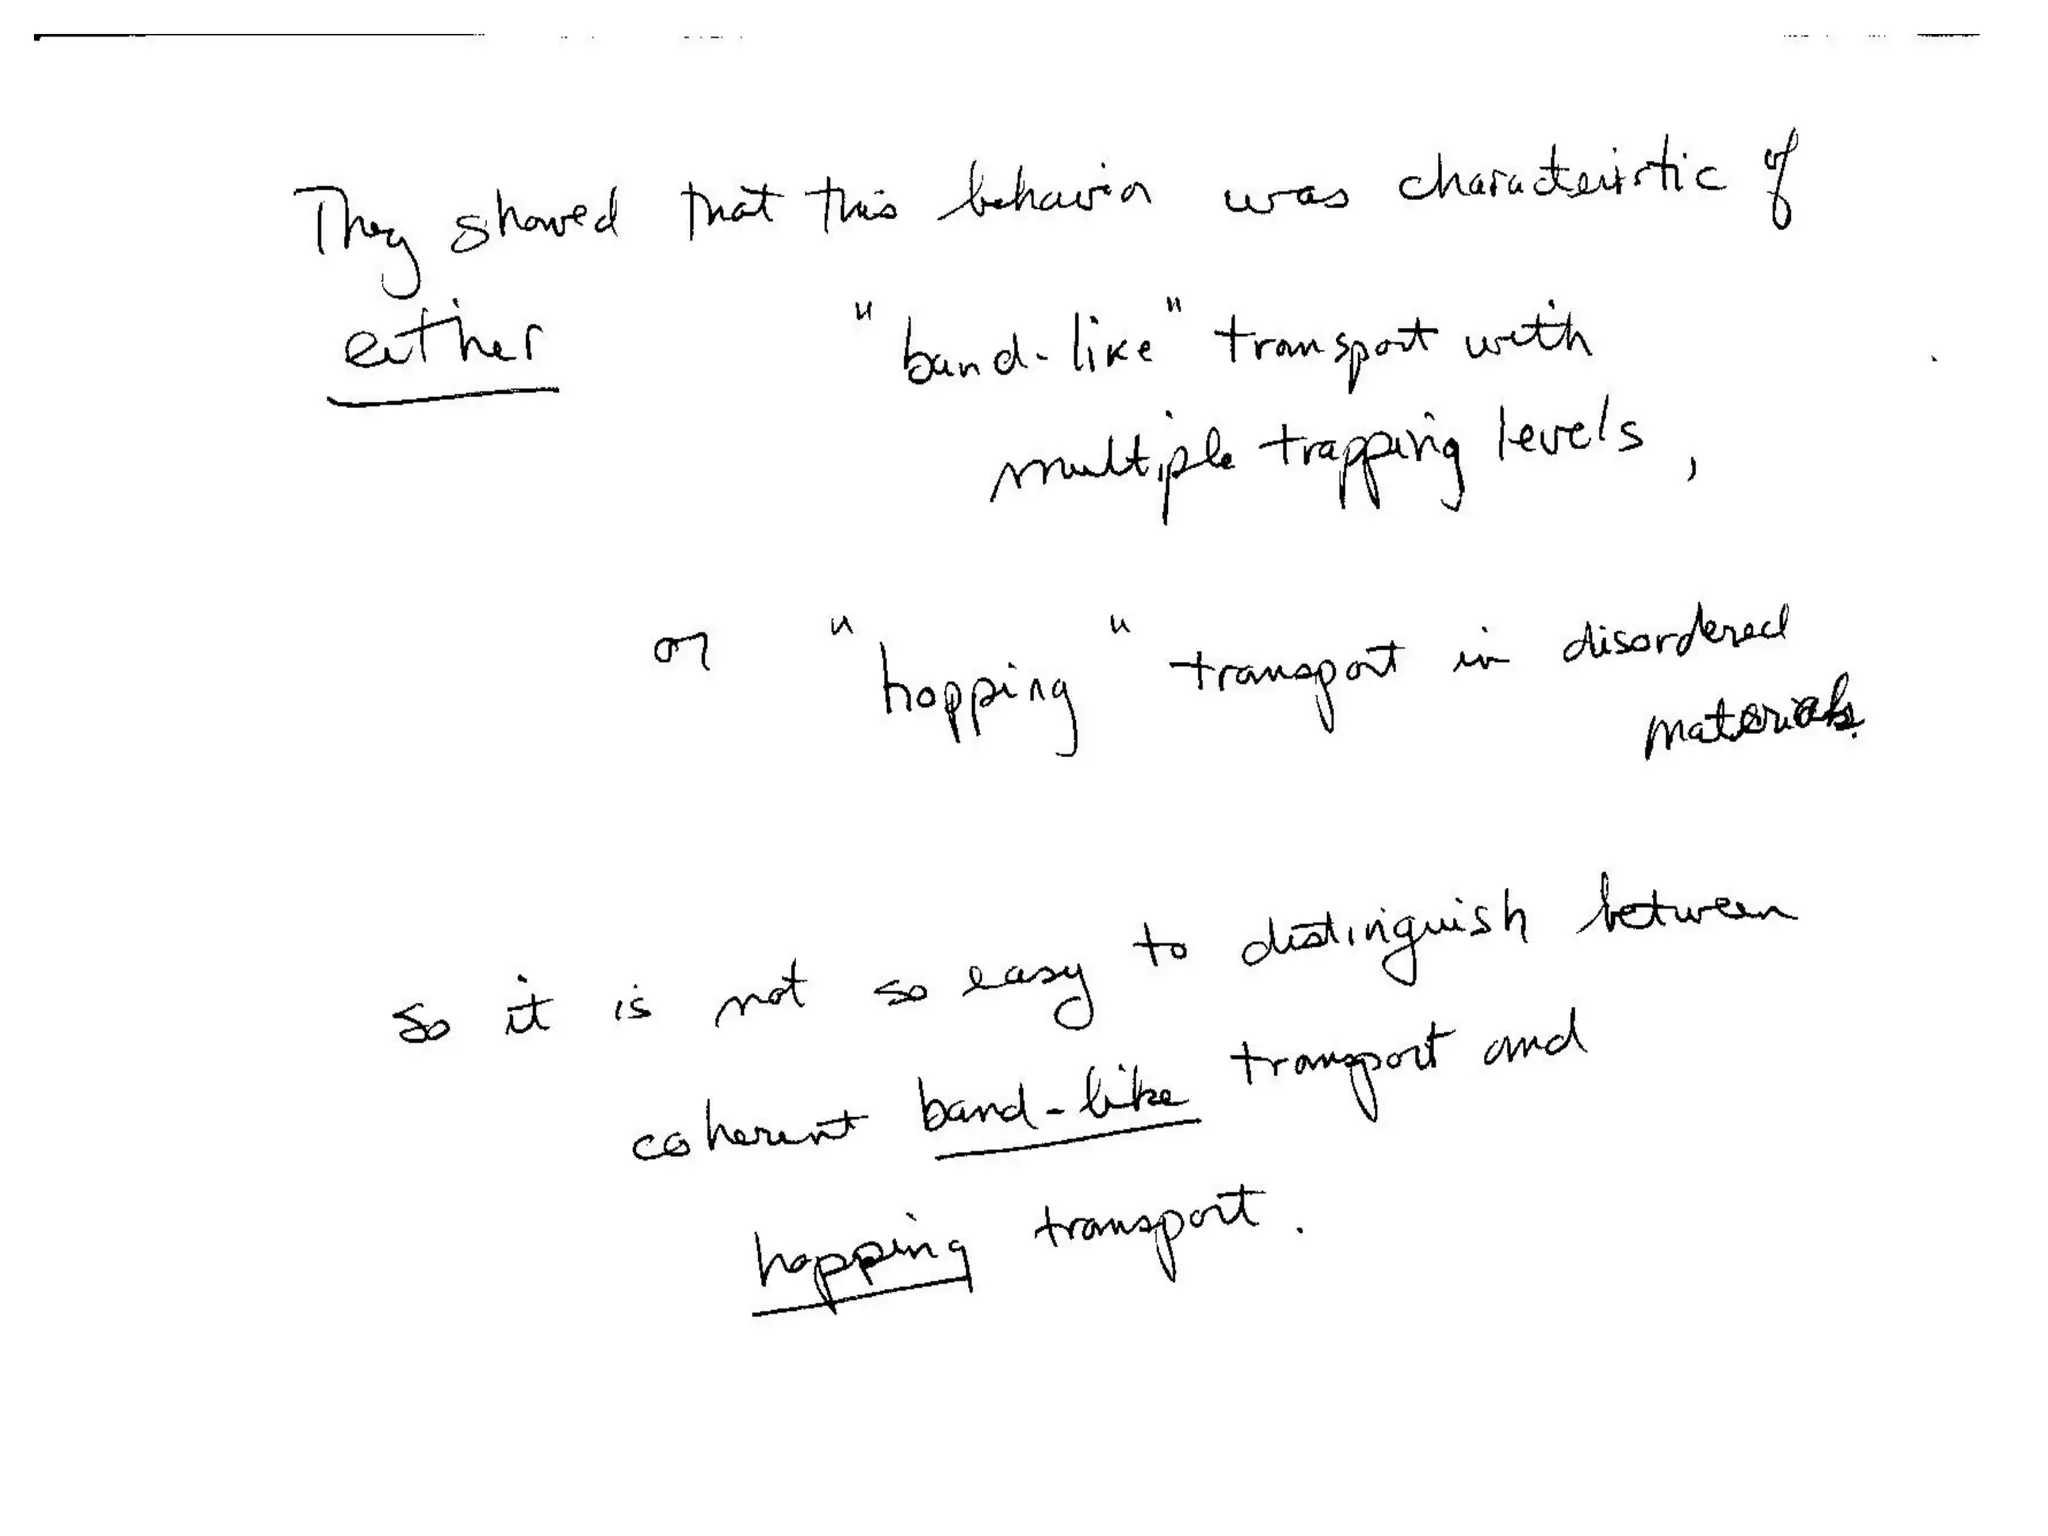 They showed that this behavior was characteristic of
either "band-like" transport with
multiple trapping levels,
or "hopping" transport in disordered
materials.
So it is not so easy to distinguish between
coherent band-like transport and
hopping transport.